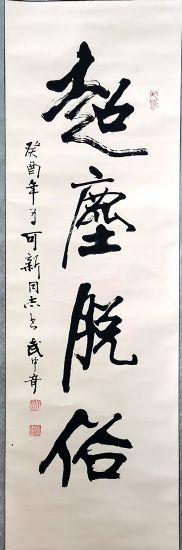 超塵脱俗
癸酉年 可新同志 武中奇